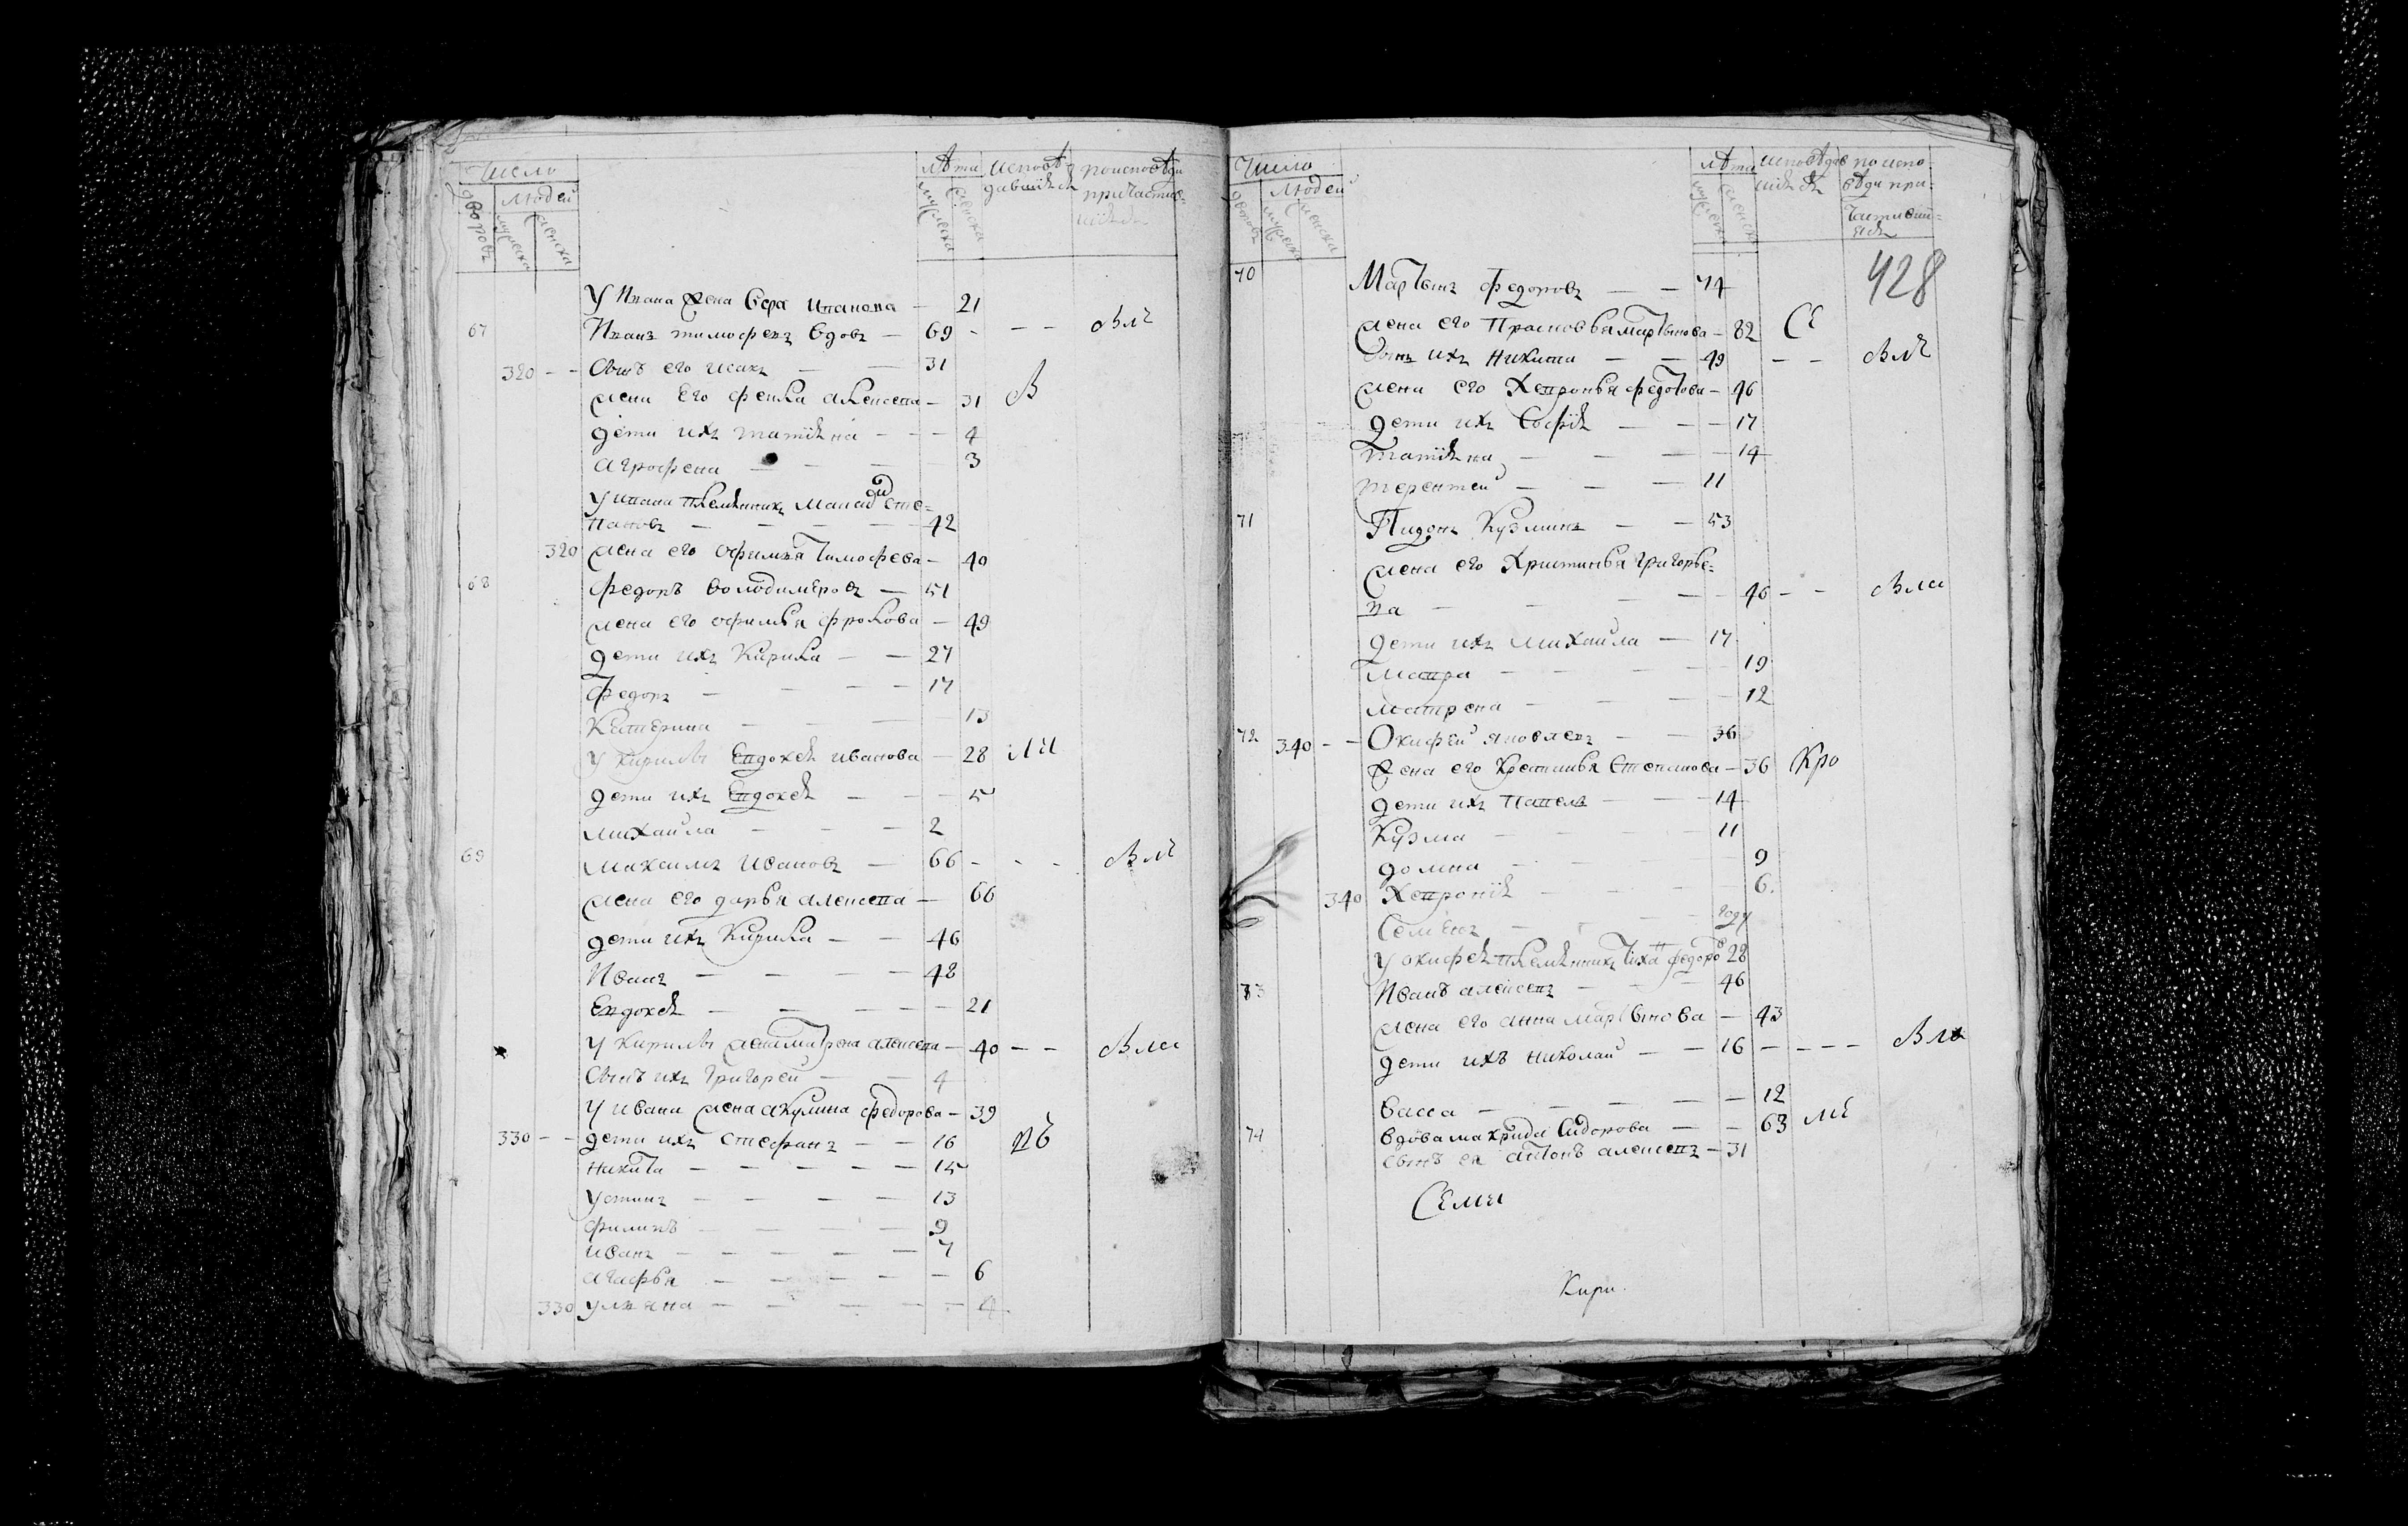 Число
людей
дворовъ
мужеска
женска
лѣта
мужеска
женска
исповѣ-
давшихся
поисповѣди
причастив-
шихся
У Ивана жена Вера Иванова — 21
67 Иванъ тимофеевъ вдовъ — 69 - — —
320 — — Сынъ его исакъ — — 31
жена Его фекла алексеева — 31
дети ихъ татияна — — — 4
агрофена — — — 3
У ивана племянникъ Сте-
пановъ — — — — 42
320 жена его офимья тимофеева — 40
68 федоръ володимеровъ — 51
жена его офимья фролова — 49
дети ихъ Кирила — — 27
федоръ — — — — 17
Катерина — — — 13
У кирилы Евдокея иванова — 28
дети ихъ Евдокея — — 5
михайла — — — 2
69 максимъ Ивановъ — 66 - - -
жена его дарья алексеева — 66
дети ихъ Кирила — — 46
Иванъ — — — — 48
Евдокея — — — — 21
У Кирилы жена матрена алексеева — 40 — —
Сынъ ихъ Григорей — — 4
У ивана жена акулина федорова — 39
330 — — дети ихъ Стефанъ — — 16
никита — — — — — 15
Устинъ — — — — 13
филипъ — — — — 9
иванъ — — — — — 7
агафья — — — — — 6
330 улияна — — — — — 4
Число
людей
дворовъ
мужеска
женска
лѣта
мужеска
женска
исповѣдав
шихся
по испо-
вѣди при-
частивш-
ихся
428
70 Мартынъ федоровъ — — 74
жена его Прасковья мартынова — 82
Сынъ ихъ никита — — 49 — —
жена его Хевронья федотова — 46
дети ихъ Софія — — — 17
татияна — — — — 14
терентей — — — 11
71 Сидоръ Кузминъ — — 53
жена его Христинья григорье-
ва — — — — 46 — —
дети ихъ михайла — 17
мавра — — — — 19
матрена — — — — 12
72 340 — — Окифей яковлевъ — — 36
жена его Крестинья Степанова — 36
дети ихъ Павелъ — — 14
Кузма — — — — 11
домна — — — 9
340 Хеврония — — — 6
Семенъ — — — году
У окифея племянникъ тихон федоро 28
73 Иванъ алексеевъ — — 46
жена его анна мартынова — 43
дети ихъ николай — — 16 — — — —
васса — — — — — 12
74 вдова макрида Сидорова — — 63
сынъ ея антонъ алексеевъ — 31
Семы
Кири.